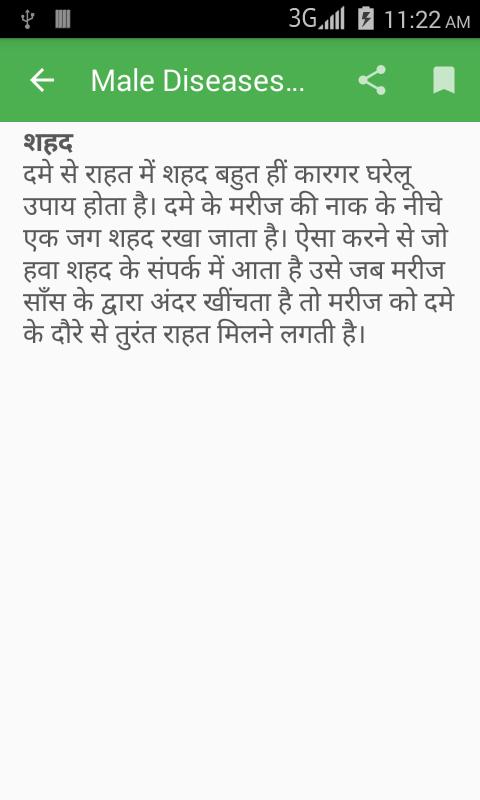 3G 11:22 AM
Male Diseases...
शहद
दमे से राहत में शहद बहुत हीं कारगर घरेलू
उपाय होता है। दमे के मरीज की नाक के नीचे
एक जग शहद रखा जाता है। ऐसा करने से जो
हवा शहद के संपर्क में आता है उसे जब मरीज
साँस के द्वारा अंदर खींचता है तो मरीज को दमे
के दौरे से तुरंत राहत मिलने लगती है।